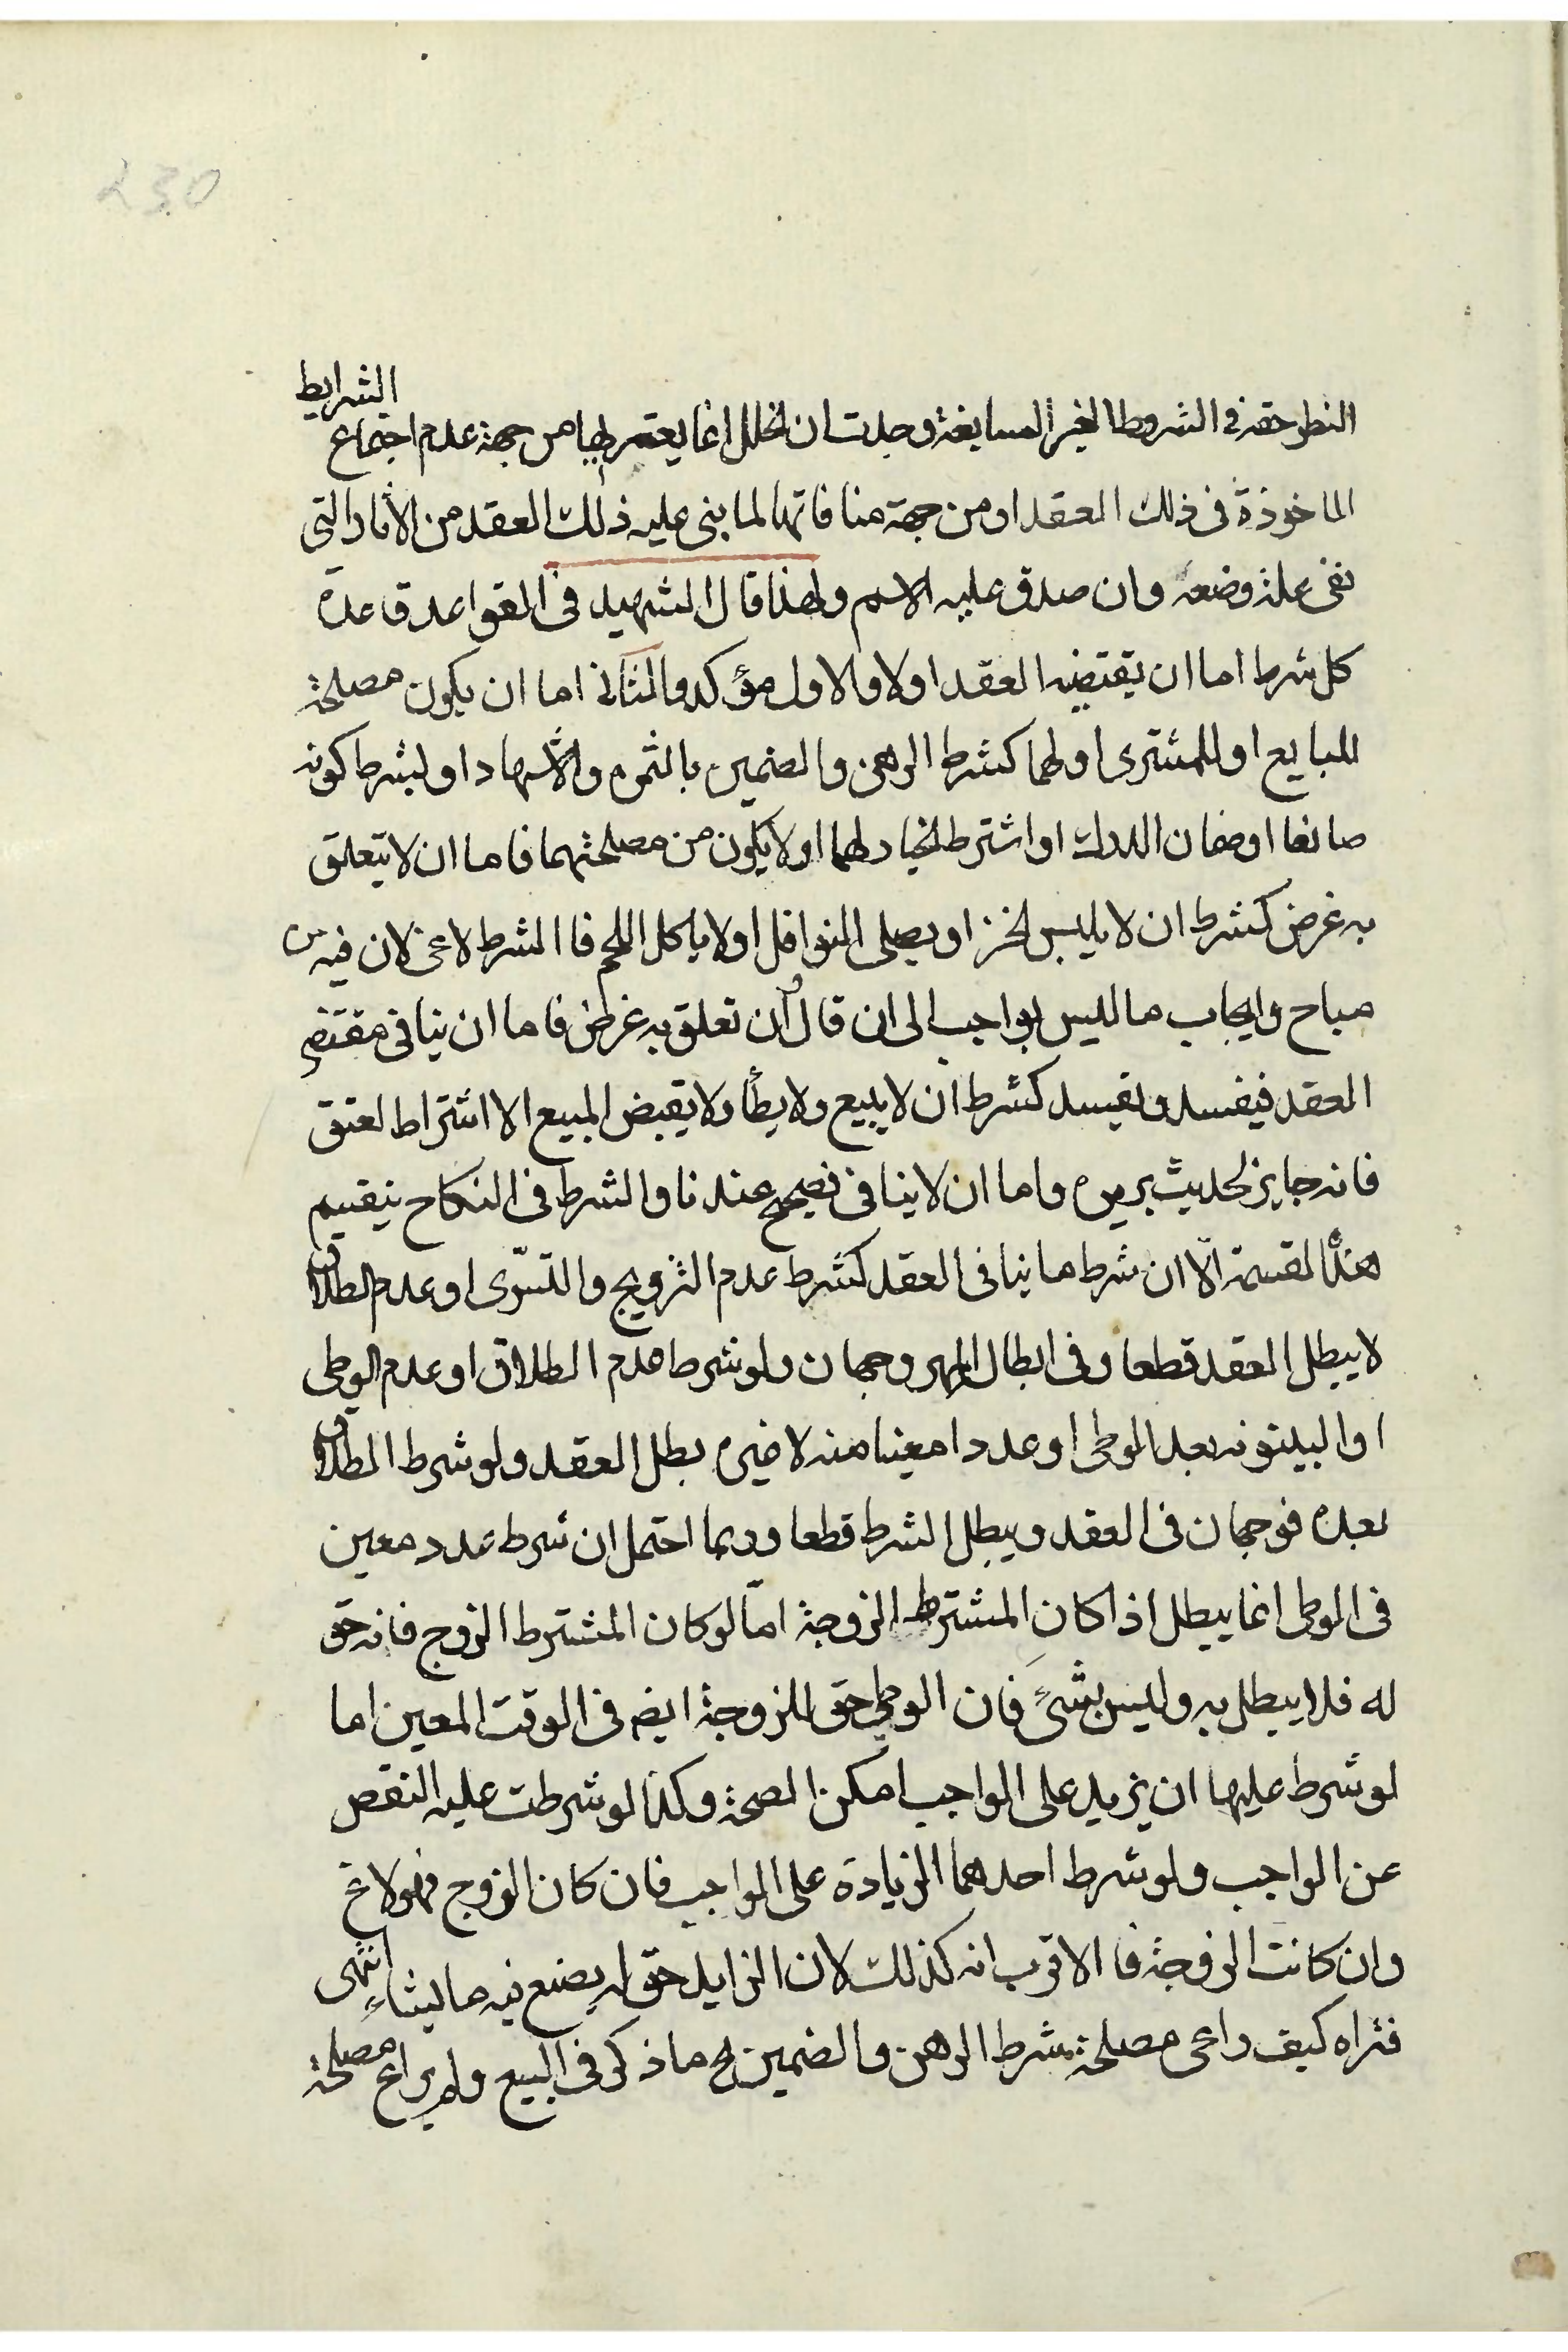 230
النظر حقه فى الشروط الغير السايغة وجدت ان الخلل انما يعتريها من جهة عدم اجتماع الشرايط
الماخوذة فى ذلك العقد او من جهة منافاتها لما بنى عليه ذلك العقد من الاثار التى
نفى علة وضعه وان صدق عليه الاسم ولهذا قال الشهيد فى القواعد قاعدة
كل شرط اما ان يقتضيه العقد اولا والاول مؤكد والثانى اما ان يكون مصلحة
للبايع او للمشترى او لهما كشرط الرهن والضمين بالثمن والاشهاد او لشرط كونه
صانعا او ضمان الدرك او اشترط الخيار لهما او لا يكون من مصلحتهما فاما ان لا يتعلق
به غرض كشرط ان لا يلبس الخز او يصلى النوافل او لا ياكل اللحم فا الشرط لاغ لان فيه
مباح وايجاب ما لليس بواجب الى ان قال وان تعلق به غرض فاما ان ينافى مقتضى
العقد فيفسد ويفسد كشرط ان لا يبيع ولا يطأ ولا يقبض المبيع الا اشتراط العتق
فانه جايز لحديث بريرة واما ان لا ينافى فصحيح عندنا والشرط فى النكاح ينقسم
هذا لقسمة الّا ان شرط ما ينافى العقد كشرط عدم التزويج والتسّرى او عدم الطلاق
لا يبطل العقد قطعا وفى ابطال المهر وجهان ولو شرط عدم الطلاق او عدم الوطى
او البينونه بعد الوطى او عددا معينا منه لا غيره بطل العقد ولو شرط الطلاق
بعده فوجهان فى العقد ويبطل الشرط قطعا وربما احتمل ان شرط عدد معين
فى الوطى انما يبطل اذا كان المشترط الزوجة امّا لو كان المشترط الزوج فانه حق
له فلا يبطل به وليس بشئ فان الوطى حق للزوجة ايضه فى الوقت المعين اما
لو شرط عليها ان يزيد على الواجب امكن الصحة وكذا لو شرطت عليه النقص
عن الواجب ولو شرط احدهما الزيادة على الواجب فان كان الزوج فهو لاغ
وان كانت الزوجة فا الاقرب انه كذلك لان الزايد حق له يصنع فيه ما يشاء انتهى
فتراه كيف راعى مصلحة شرط الرهن والضمين مع ما ذكر فى البيع ولم يراع مصلحة